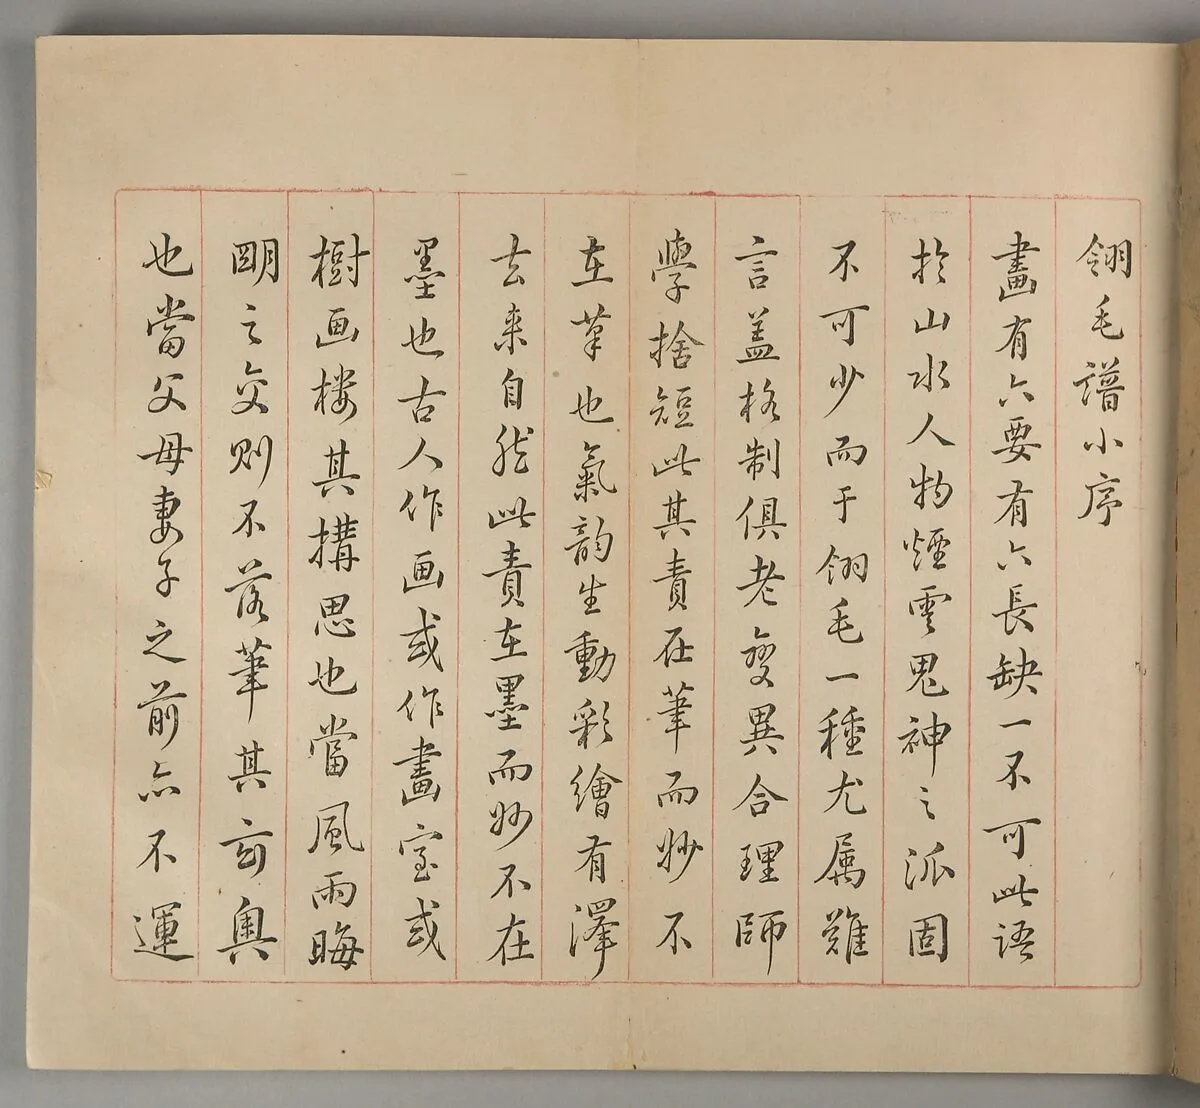 翎毛譜小序
畫有六要有六長缺一不可此語
於山水人物煙雲鬼神之派固
不可少而于翎毛一種尤属難
言盖格制俱老變異合理師
學捨短此其責在筆而妙不
在筆也氣韵生動彩繪有澤
去来自然此責在墨而妙不在
墨也古人作画或作畫室或
樹画楼其搆思也當風雨晦
朙之交则不落筆其玄奥
也當父母妻子之前亦不運